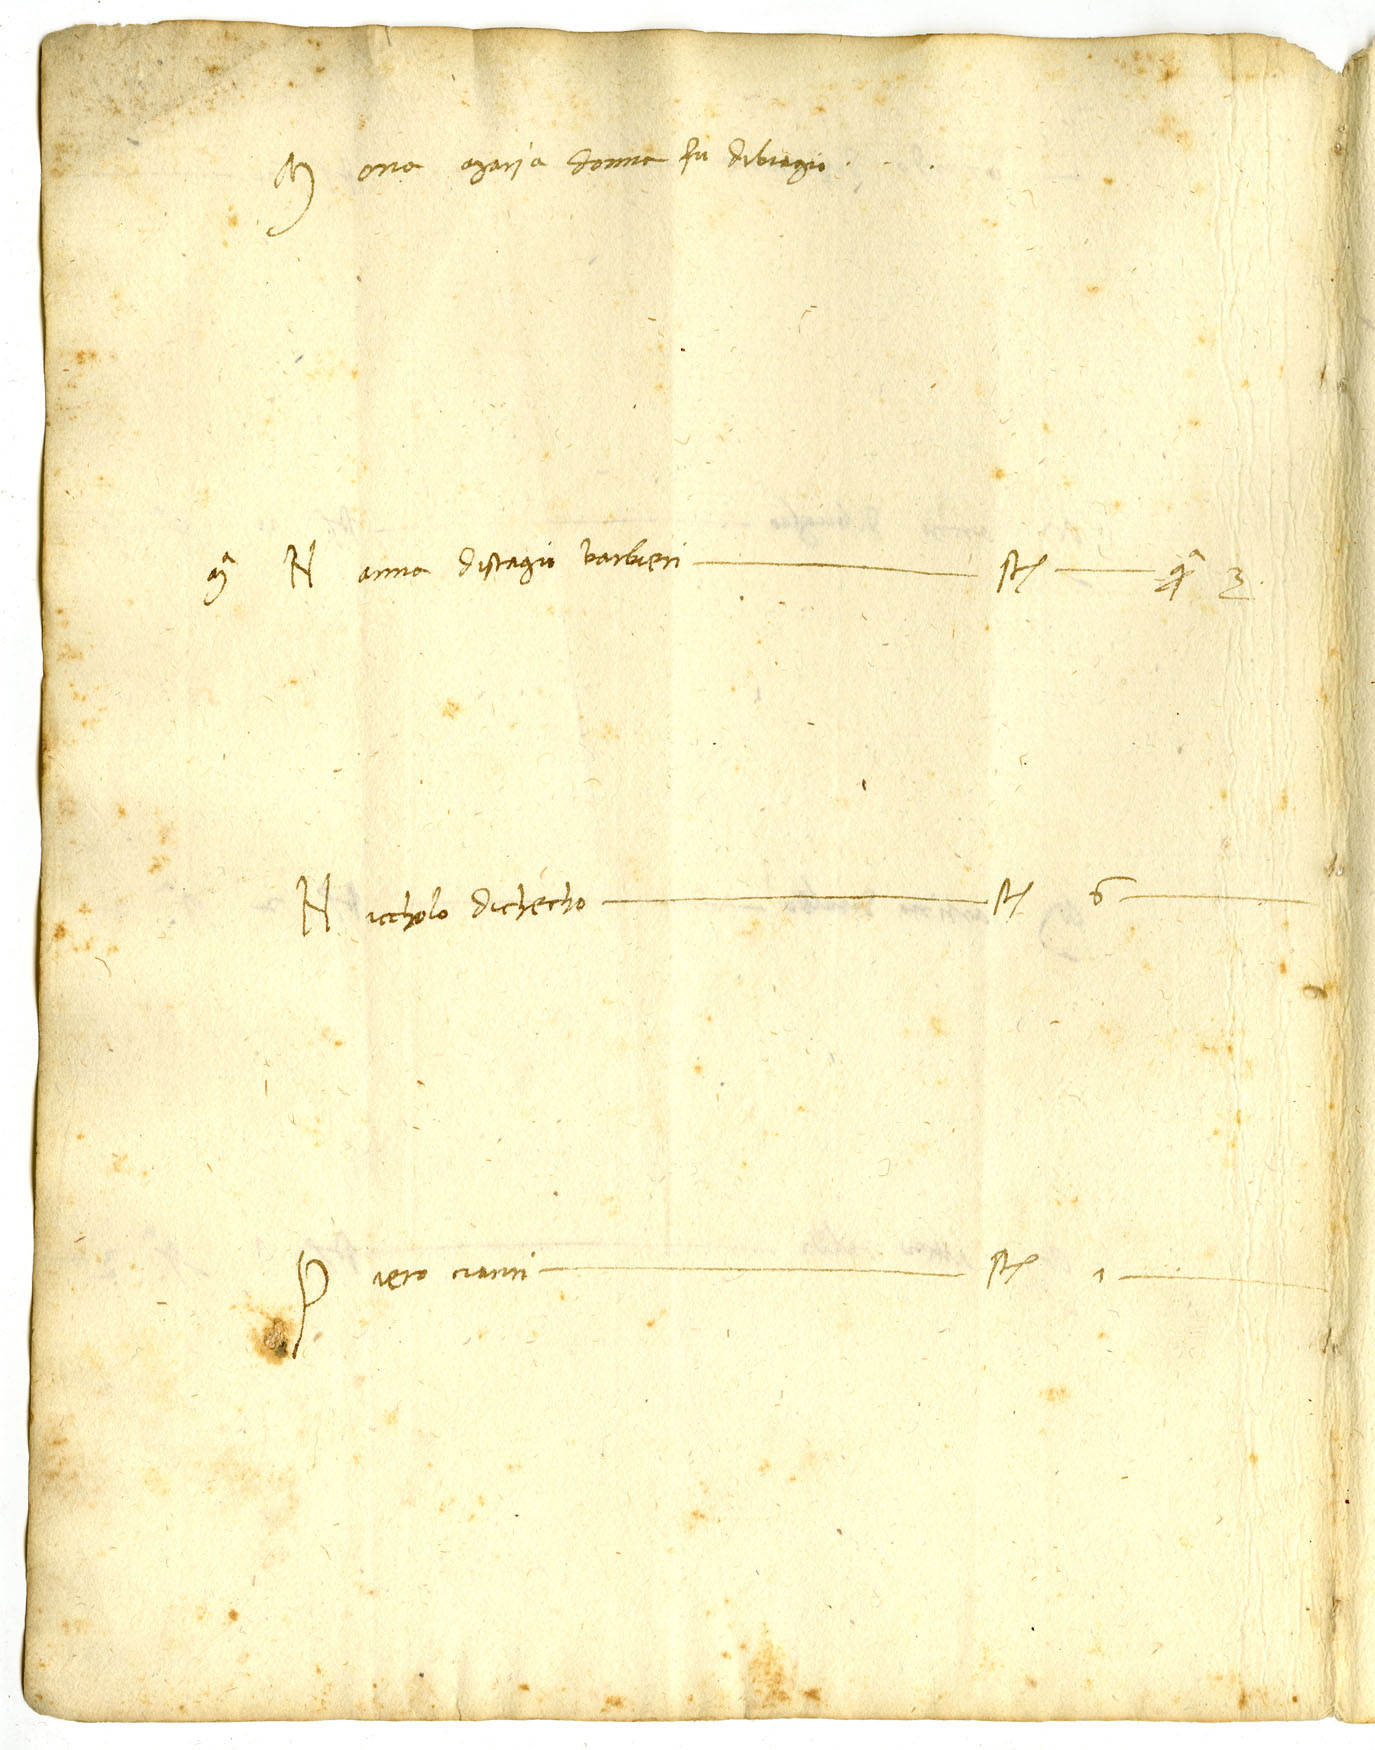 Mona maria donna fu dibiagio . . .
mª Nanna distagio barbieri st qª 3.
Niccholo dichecho st 6
Piero cianni st 1